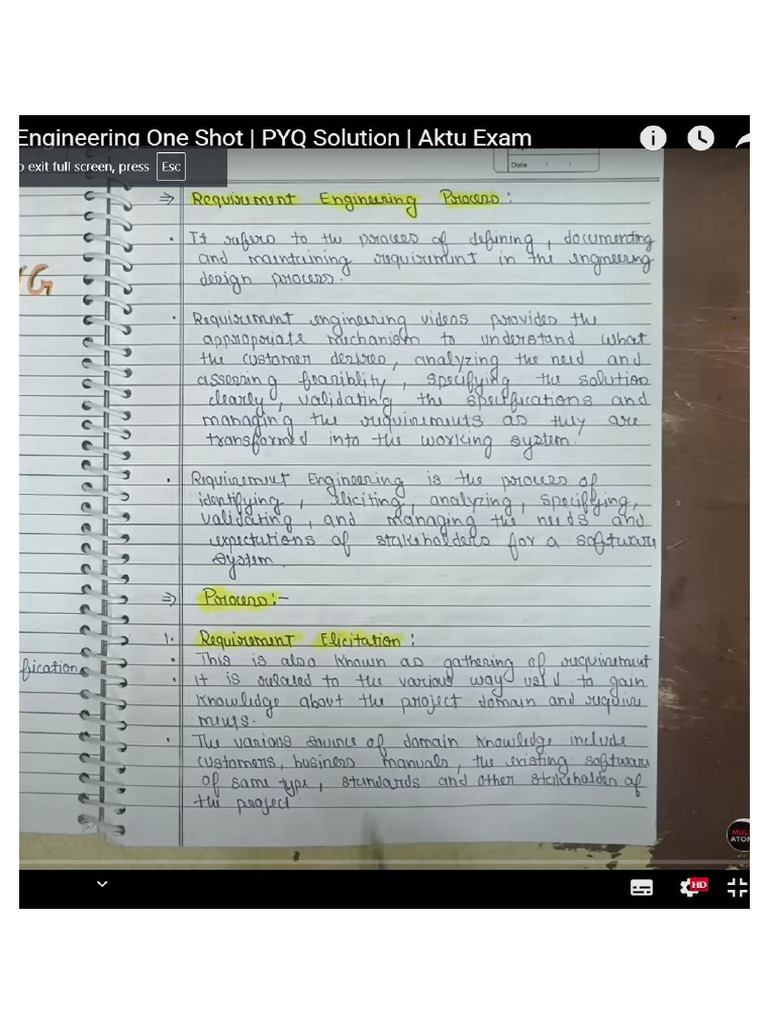 Engineering One Shot | PYQ Solution | Aktu Exam
o exit full screen, press Esc
Date / /
⇒ Requirement Engineering Process :
• It refers to the process of defining , documenting
and maintaining requirement in the engineering
design process.
• Requirement engineering videos provides the
appropriate mechanism to understand what
the customer desires, analyzing the need and
assessing feasiblity , specifying the solution
clearly, validating the specifications and
managing the requirements as they are
transformed into the working system.
• Requirement Engineering is the process of
identifying , eliciting, analyzing, specifying,
validating , and managing the needs and
expectations of stakeholders for a software
system.
⇒ Process:-
1. Requirement Elicitation :
• This is also known as gathering of requirement
fication
• It is related to the various way used to gain
knowledge about the project domain and require
ments.
• The various source of domain knowledge include
customers, business manuals, the existing software
of same type, standards and other stakeholder of
the project
HD